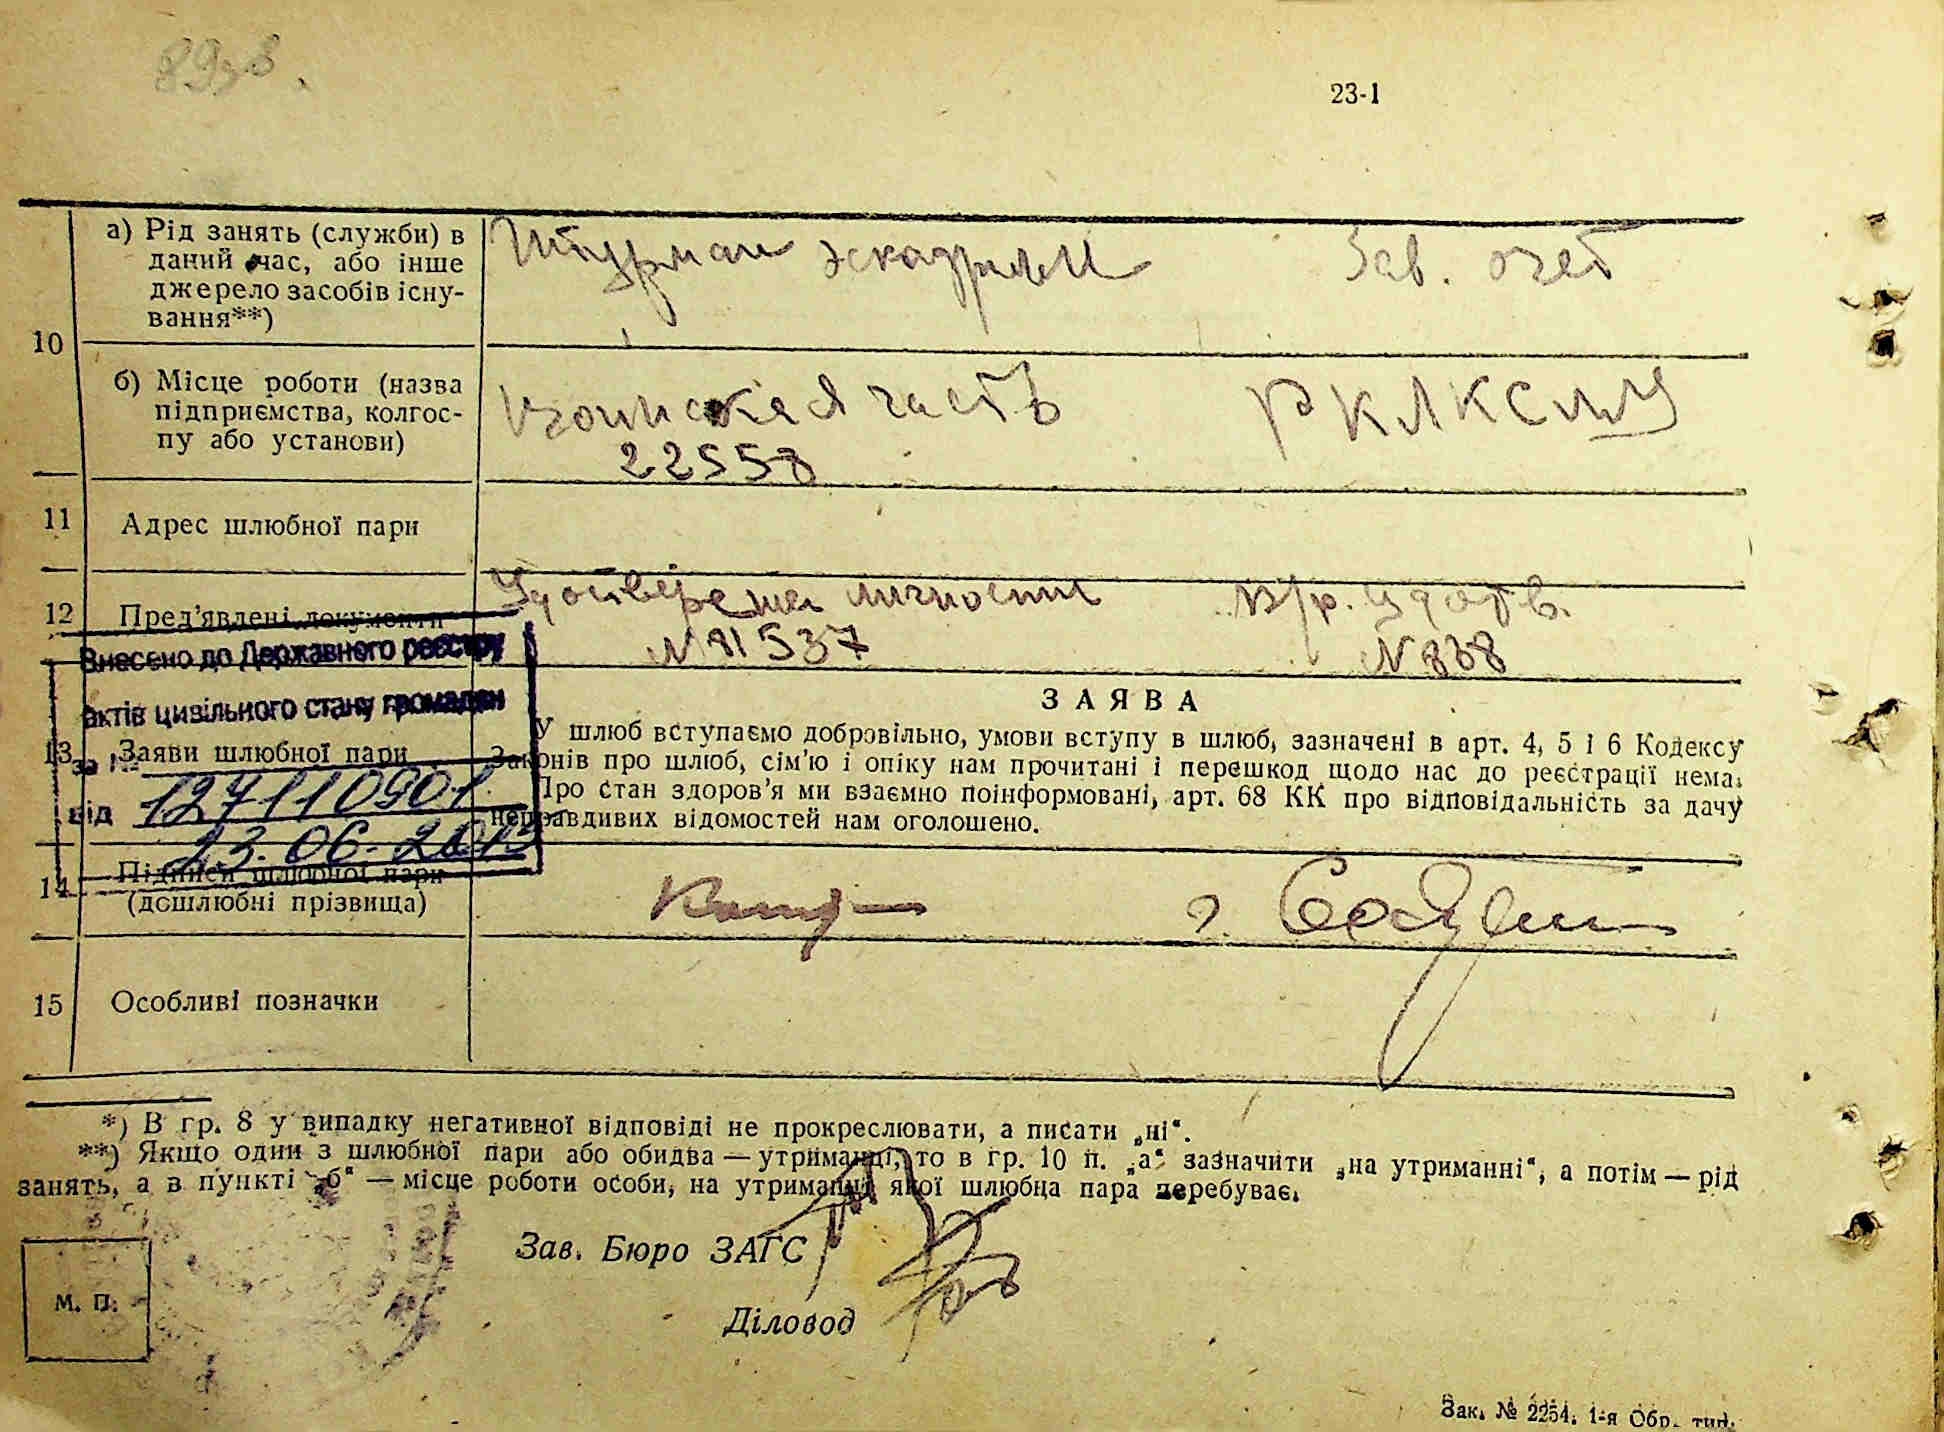 23-1
10
а) Рід занять (служби) в
даний час, або інше
джерело засобів існу-
вання**)
Штурман эскадрильи
Зав. очет
б) Місце роботи (назва
підприємства, колгос-
пу або установи)
Воинская часть
22558
РКЛКСМУ
11
Адрес шлюбної пари
12
Пред'явлені документи
Удостверения личности
№ 81537
В/р. удотв.
№ 838
Внесено до Державного реєстру
актів цивільного стану громадян
за №
127110901
від
23.06.2015
13
Заяви шлюбної пари
ЗАЯВА
У шлюб вступаємо добровільно, умови вступу в шлюб, зазначені в арт. 4, 5 і 6 Кодексу
Законів про шлюб, сім'ю і опіку нам прочитані і перешкод щодо нас до реєстрації нема.
Про стан здоров'я ми взаємно поінформовані, арт. 68 КК про відповідальність за дачу
неправдивих відомостей нам оголошено.
14
Підписи шлюбної пари
(дошлюбні прізвища)
15
Особливі позначки
*) В гр. 8 у випадку негативної відповіді не прокреслювати, а писати „ні“.
**) Якщо один з шлюбної пари або обидва — утриманці, то в гр. 10 п. „а“ зазначити „на утриманні“, а потім — рід
занять, а в пункті „б“ — місце роботи особи, на утриманні якої шлюбна пара перебуває.
Зав. Бюро ЗАГС
Діловод
М. П.
Зак. № 2254. 1-я Обр. тип.